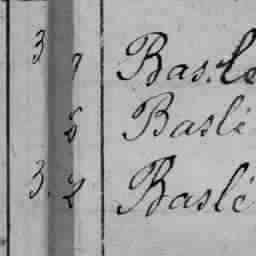 3 7 Basle
8 Basle
3. 2 Basle